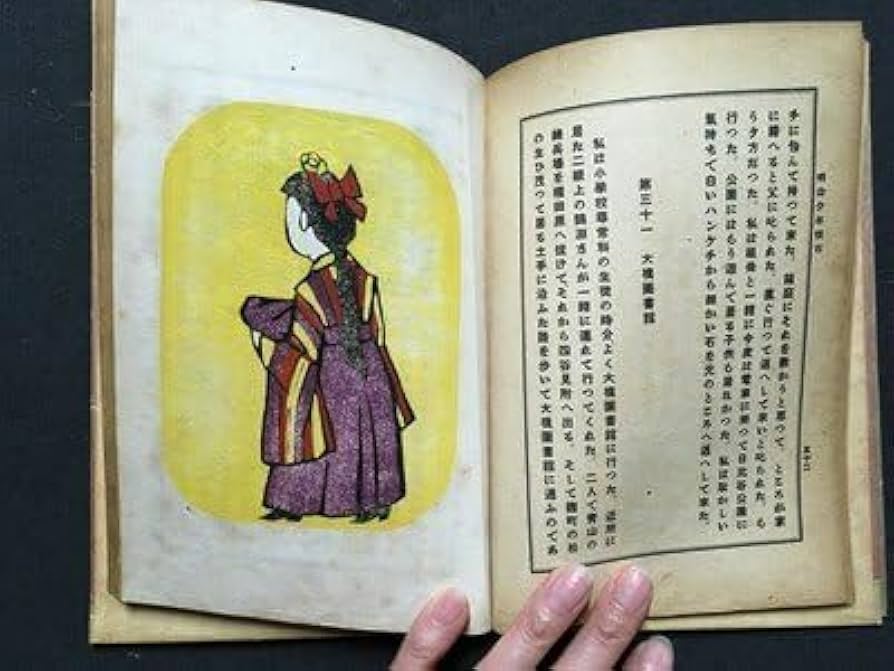 明治少年懐古
五十二
手に包んで持つて来た。縁庭にそれを敷かうと思つて、ところが家
に歸へると父に叱られた。直ぐ行つて返へして来いと叱られた。も
う夕方だつた。私は祖母と一緒に今度は電車に乗つて日比谷公園に
行つた。公園にはもう遊んで居る子供も居なかつた。私は恥かしい
氣持ちで白いハンケチから細かい石を元のところへ返へして来た。
第三十一 大橋圖書館
私は小學校尋常科の生徒の時分よく大橋圖書館に行つた。近所に
居た二級上の鶴淵さんが一緒に連れて行つてくれた。二人で青山の
練兵場を権田原へ抜けて、それから四谷見附へ出る。そして麹町の松
の生ひ茂つて居る土手に沿ふた路を歩いて大橋圖書館に通ふのであ